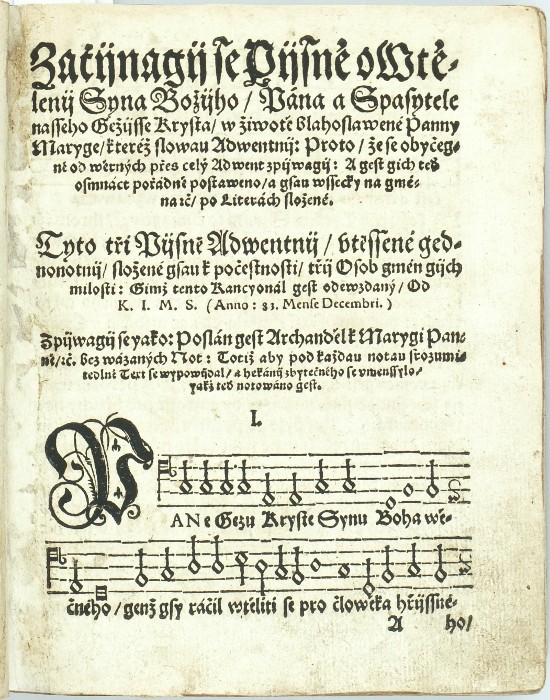 Začijnagij se Pijsně o Wtě-
lenij Syna Božijho / Pána a Spasytele
nasseho Gežijsse Krysta / w žiwotě blahoslawené Panny
Maryge / kteréž slowau Adwentnij: Proto / že se obyčeg-
ně od wěrných přes celý Adwent zpijwagij: A gest gich teď
osmnáct pořádně postaweno / a gsau wssecky na gmé-
na ꝛč / po Literách složené.
Tyto tři Pijsně Adwentnij / vtěssené ged-
nonotnij / složené gsau k počestnosti / třij Osob gmén gijch
milosti: Gimž tento Kancyonál gest odewzdaný / Od
K. I. M. S. (Anno: 83. Mense Decembri.)
Zpijwagij se yako: Poslán gest Archanděl k Marygi Pan-
ně / ꝛč. bez wázaných Not: Totiž aby pod každau notau srozumi-
tedlně Text se wypowijdal / a hekánij zbytečného se vmenssylo /
yakž teď notowáno gest.
I.
PANe Gezu Kryste Synu Boha wě-
čného / genž gsy ráčil wtěliti se pro člowěka hřijssné-
A ho /